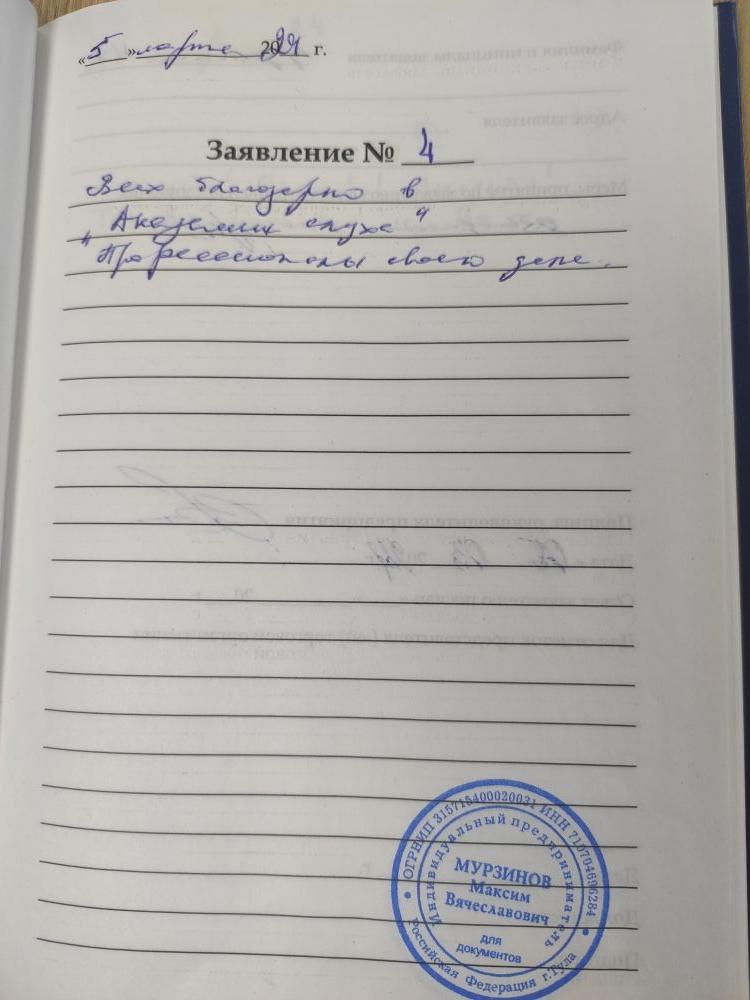 «5» марта 2024 г.
Заявление № 4
Всех благодарю в
"Академии слуха"
Профессионалы своего дела.
ОГРНИП 315715400020031 ИНН 710704696284
Индивидуальный предприниматель
МУРЗИНОВ
Максим
Вячеславович
для
документов
Российская Федерация г.Тула